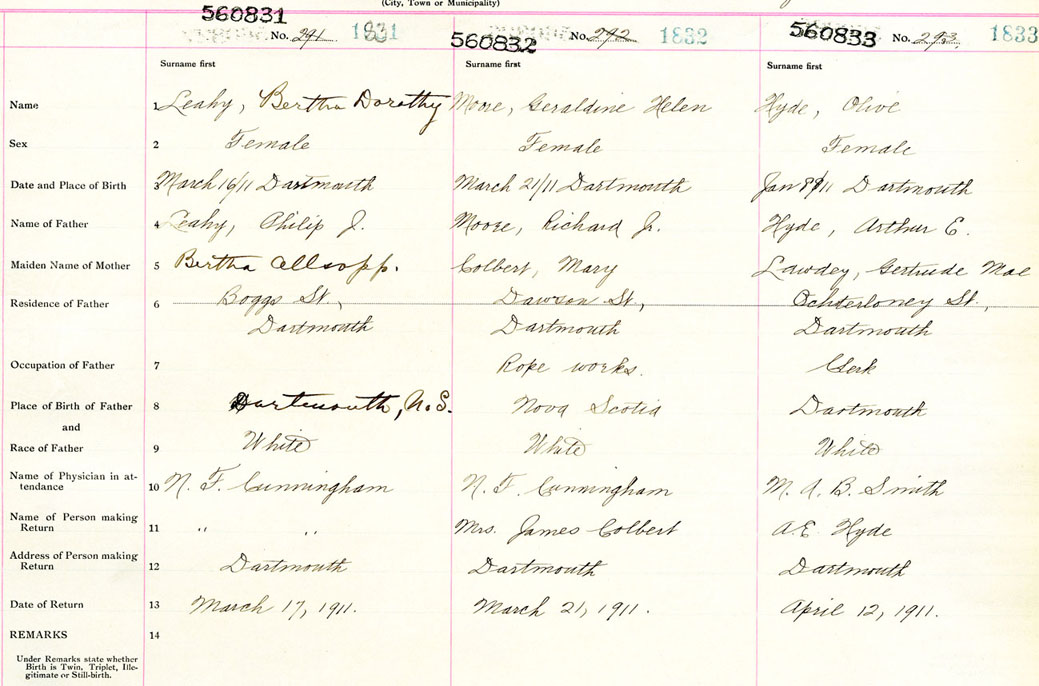 (City, Town or Municipality)
560831 No. 291 1831 560832 No. 292 1832 560833 No. 293 1833
Surname first Surname first Surname first
Name 1 Leahy, Bertha Dorothy Moore, Geraldine Helen Hyde, Olive
Sex 2 Female Female Female
Date and Place of Birth 3 March 16/11 Dartmouth March 21/11 Dartmouth Jan /11 Dartmouth
Name of Father 4 Leahy, Philip J. Moore, Richard Jr. Hyde, Arthur E.
Maiden Name of Mother 5 Bertha Allsopp. Colbert, Mary Lawdey, Gertrude Mae
Residence of Father 6 Boggs St., Dawson St., Ochterloney St.,
Dartmouth Dartmouth Dartmouth
Occupation of Father 7 Rope works. Clerk
Place of Birth of Father 8 Dartmouth, N.S. Nova Scotia Dartmouth
and
Race of Father 9 White White White
Name of Physician in at-
tendance 10 N. F. Cunningham N. F. Cunningham M. A. B. Smith
Name of Person making
Return 11 " " Mrs. James Colbert A.E. Hyde
Address of Person making
Return 12 Dartmouth Dartmouth Dartmouth
Date of Return 13 March 17, 1911. March 21, 1911. April 12, 1911.
REMARKS 14
Under Remarks state whether
Birth is Twin, Triplet, Ille-
gitimate or Still-birth.